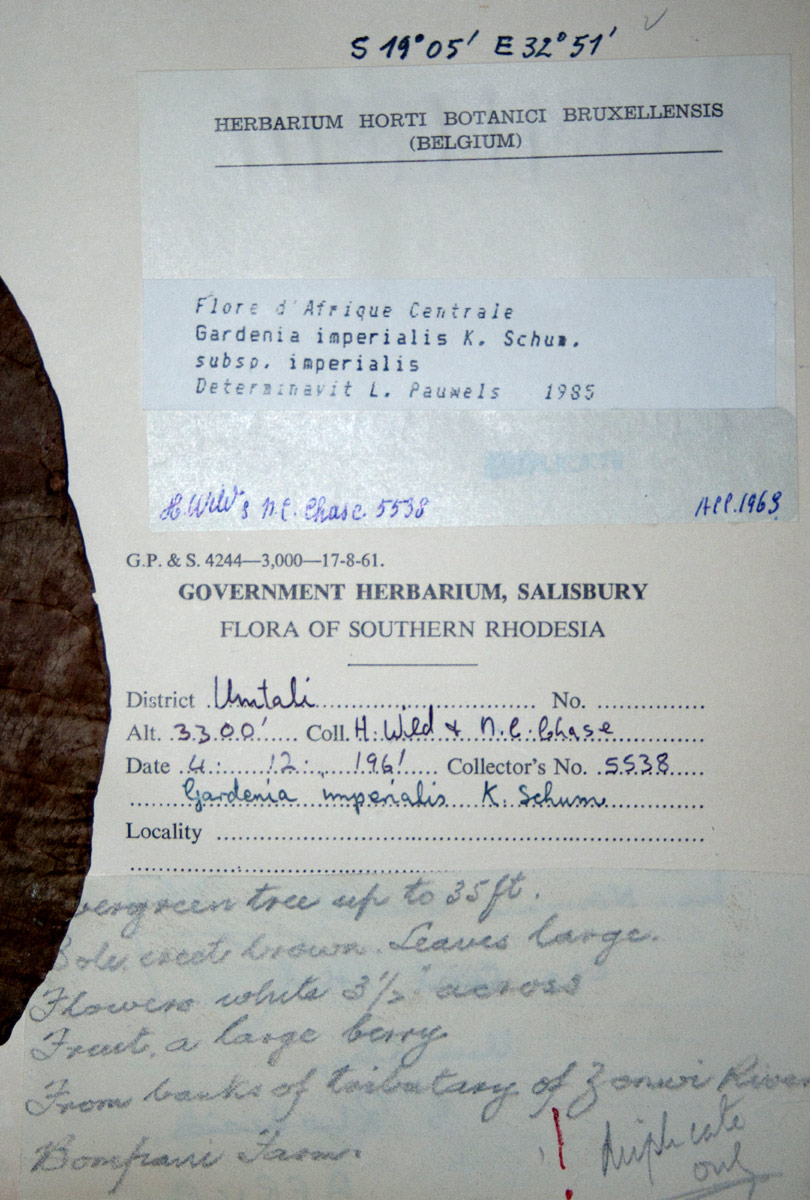 S 19°05' E 32°51'
HERBARIUM HORTI BOTANICI BRUXELLENSIS
(BELGIUM)
Flore d'Afrique Centrale
Gardenia imperialis K. Schum.
subsp. imperialis
Determinavit L. Pauwels 1985
H. Wild & N.C. Chase 5538
G.P. & S. 4244—3,000—17-8-61.
GOVERNMENT HERBARIUM, SALISBURY
FLORA OF SOUTHERN RHODESIA
District Umtali No.
Alt. 3300' Coll. H. Wild & N.C. Chase
Date 4. 12. 1961 Collector's No. 5538
Gardenia imperialis K. Schum
Locality
vergreen tree up to 35ft.
erect brown. Leaves large.
Flowers white across
Fruit, a large berry
From banks of tributary of River
Farm.
! duplicate
only